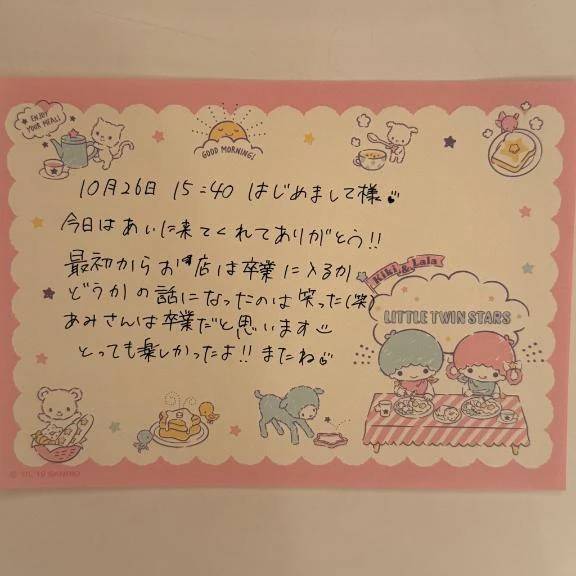 ENJOY
YOUR MEAL!
GOOD MORNING!
10月26日 15:40 はじめまして様
今日はあいに来てくれてありがとう!!
最初からお店は卒業に入るか
どうかの話になったのは笑った(笑)
あみさんは卒業だと思います
とっても楽しかったよ!! またね
Kiki & Lala
LITTLE TWIN STARS